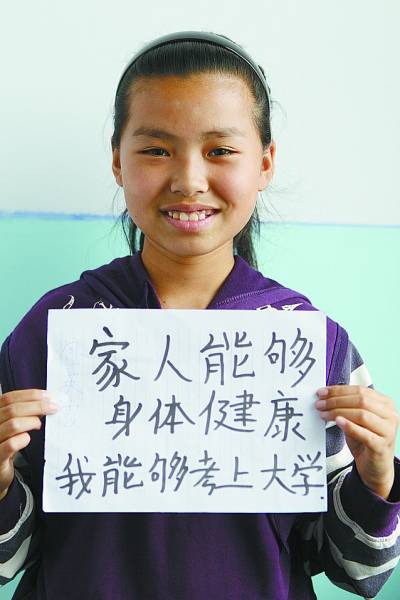 家人能够
身体健康
我能够考上大学.